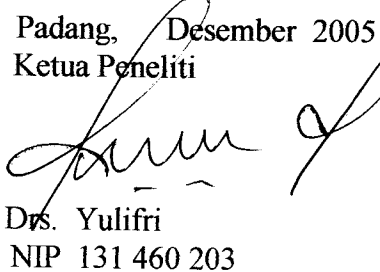 Padang, Desember 2005
Ketua Peneliti
Drs. Yulifri
NIP 131 460 203